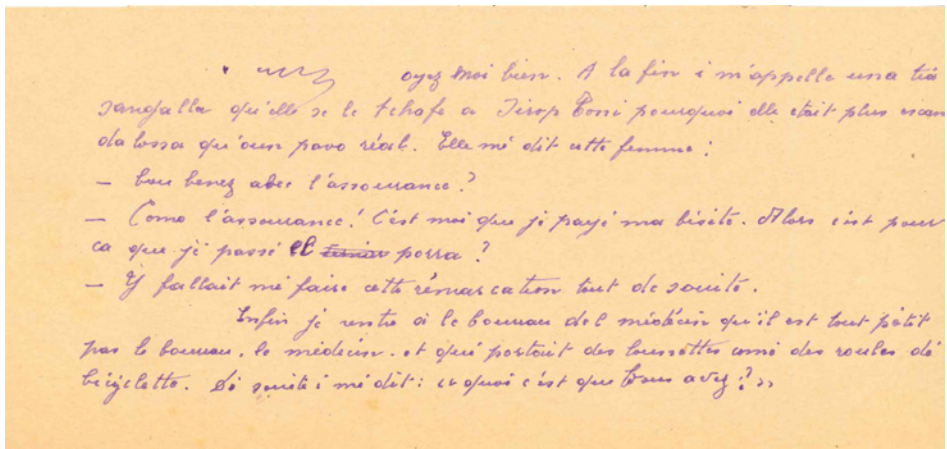 oyez moi bien. A la fin i m'appelle una tia
sangalla qu'elle se le tchafe a Sirop Toni pourquoi elle était plus escan
dalossa qu'oun pavo réal. Elle mé dit cette femme :
— bou benez abec l'assourance ?
— Como l'assourance ! C'est moi que je payé ma bisite. Alors c'est pour
ca que jé passé el porra ?
— Y fallait mé faire cette rémarcation tout de souité.
Enfin je rentre à le boureau del médécin qu'il est tout pétit
pas le boureau, le médécin. et qui portait des lounettes comé des roules dé
bicyclette. Dé souite i mé dit : et quoi c'est que bous avez ? »